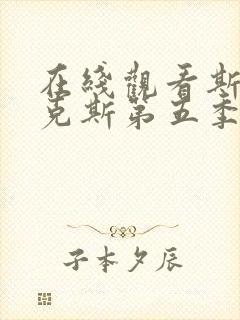 在綫觀看斯
克斯第五季
子本夕辰